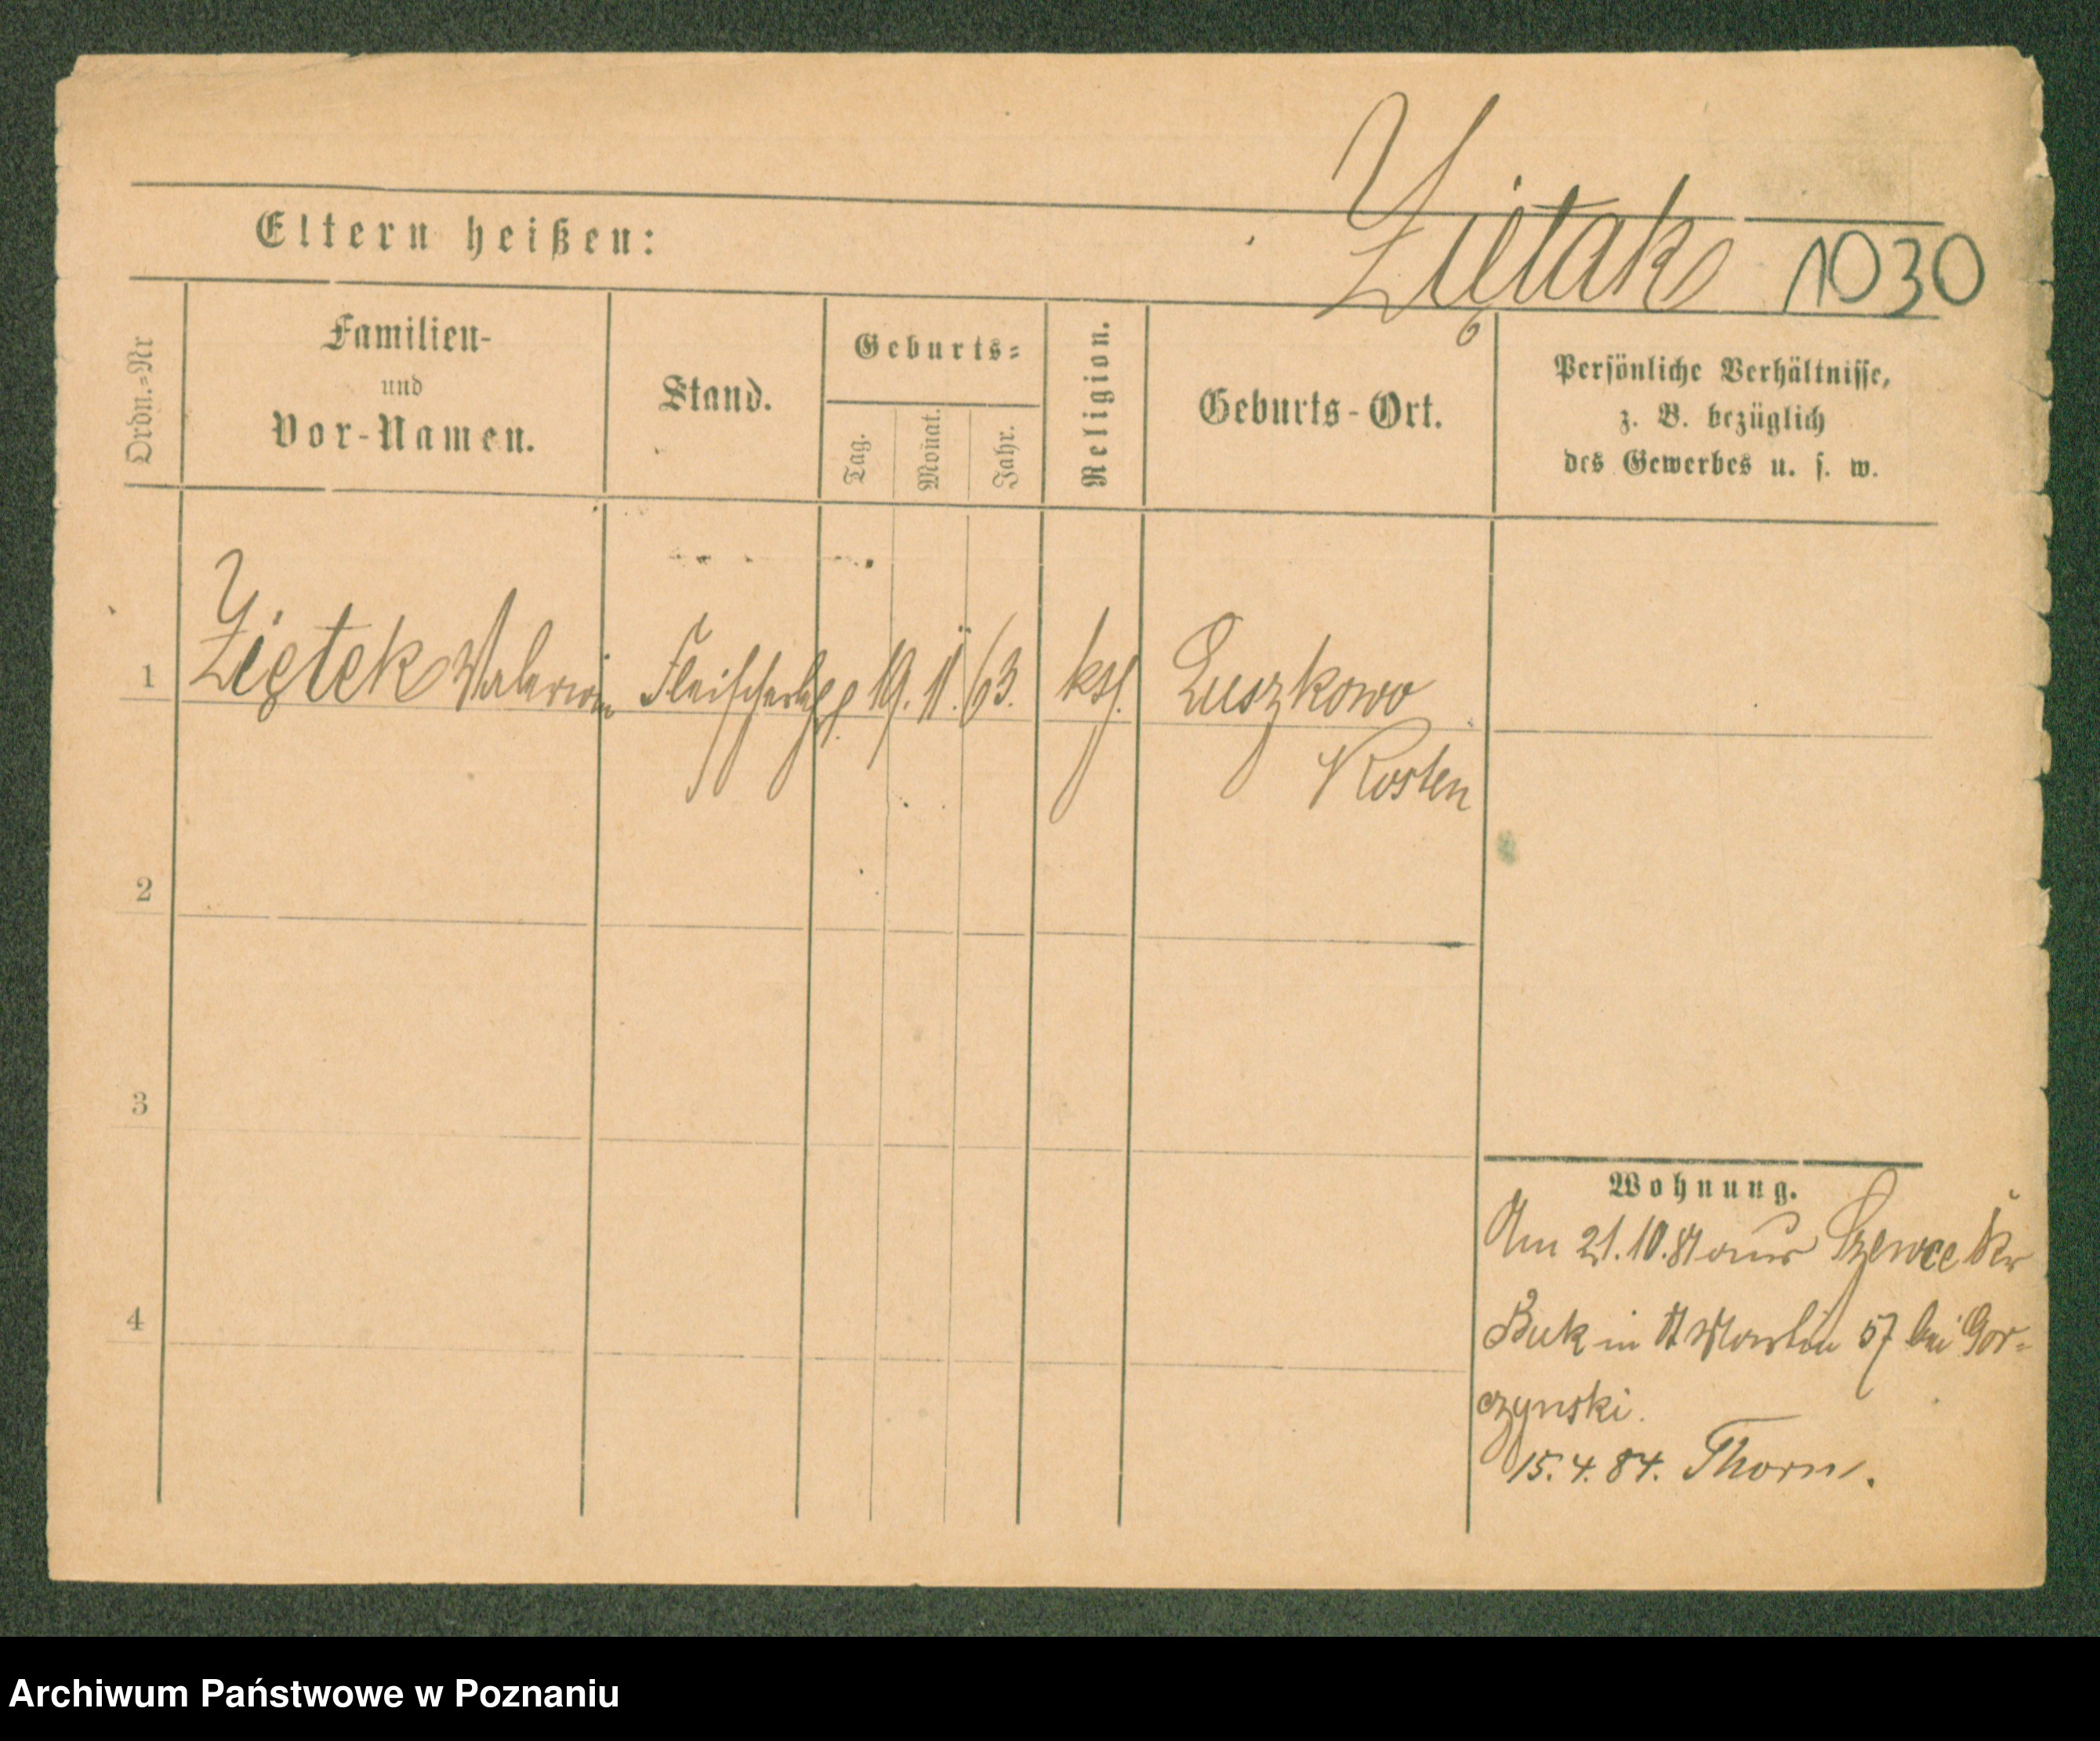 Ziętak 1030
Eltern heißen:
Ordn.=Nr
Familien-
und
Vor-Namen.
Stand.
Geburts=
Tag.
Monat.
Jahr.
Religion.
Geburts-Ort.
Persönliche Verhältnisse,
z. B. bezüglich
des Gewerbes u. s. w.
1 Ziętek Walerian 19. 11. 63. kth. Luszkowo
Kosten
2
3
4
Wohnung.
Am 21.10. aus Szewce Kr
Buk in St Martin 57 bei Gor-
czynski.
15. 4. 84. Thorn.
Archiwum Państwowe w Poznaniu